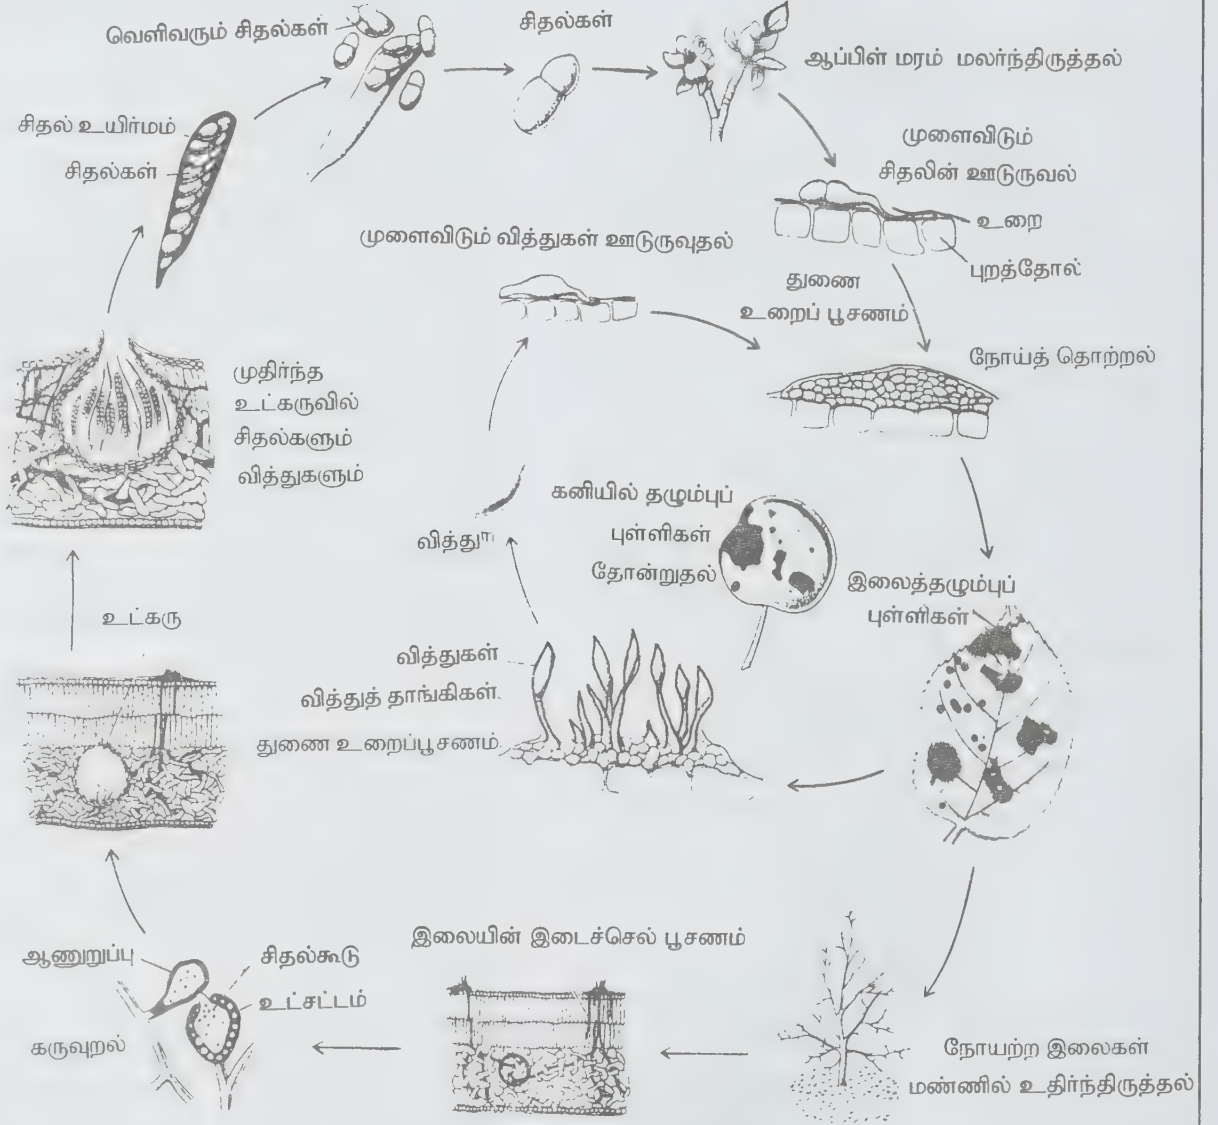 வெளிவரும் சிதல்கள்
சிதல்கள்
ஆப்பிள் மரம் மலர்ந்திருத்தல்
சிதல் உயிர்மம்
சிதல்கள்
முளைவிடும்
சிதலின் ஊடுருவல்
உறை
புறத்தோல்
முளைவிடும் வித்துகள் ஊடுருவுதல்
துணை
உறைப் பூசணம்
நோய்த் தொற்றல்
முதிர்ந்த
உட்கருவில்
சிதல்களும்
வித்துகளும்
கனியில் தழும்புப்
புள்ளிகள்
தோன்றுதல்
வித்து
இலைத்தழும்புப்
புள்ளிகள்
உட்கரு
வித்துகள்
வித்துத் தாங்கிகள்
துணை உறைப்பூசணம்
இலையின் இடைச்செல் பூசணம்
ஆணுறுப்பு
சிதல்கூடு
உட்சட்டம்
கருவுறல்
நோயற்ற இலைகள்
மண்ணில் உதிர்ந்திருத்தல்